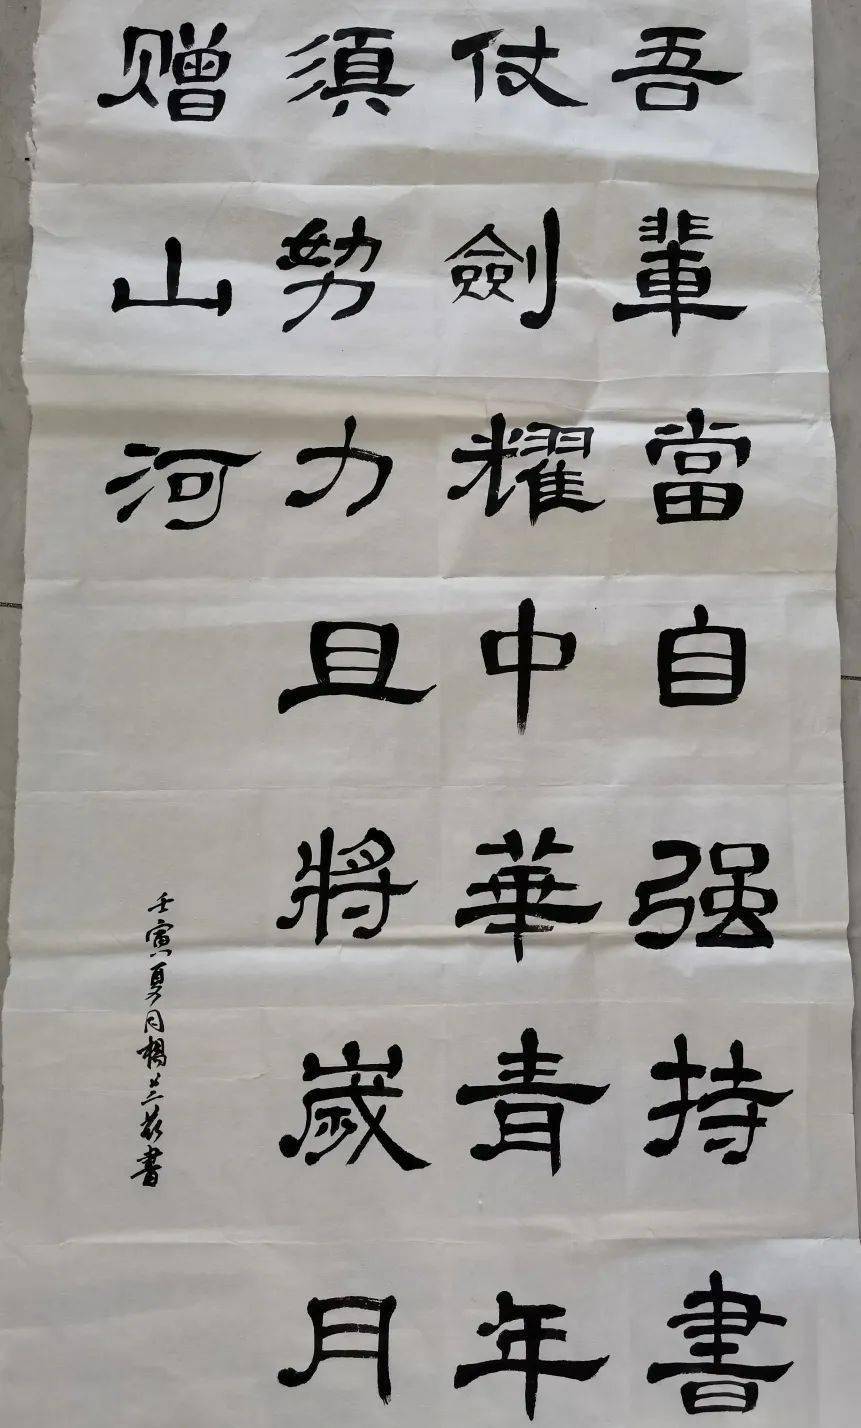 吾輩當自强持書
仗劍耀中華青年
須努力且將歲月
赠山河
壬寅夏月楊兰花書